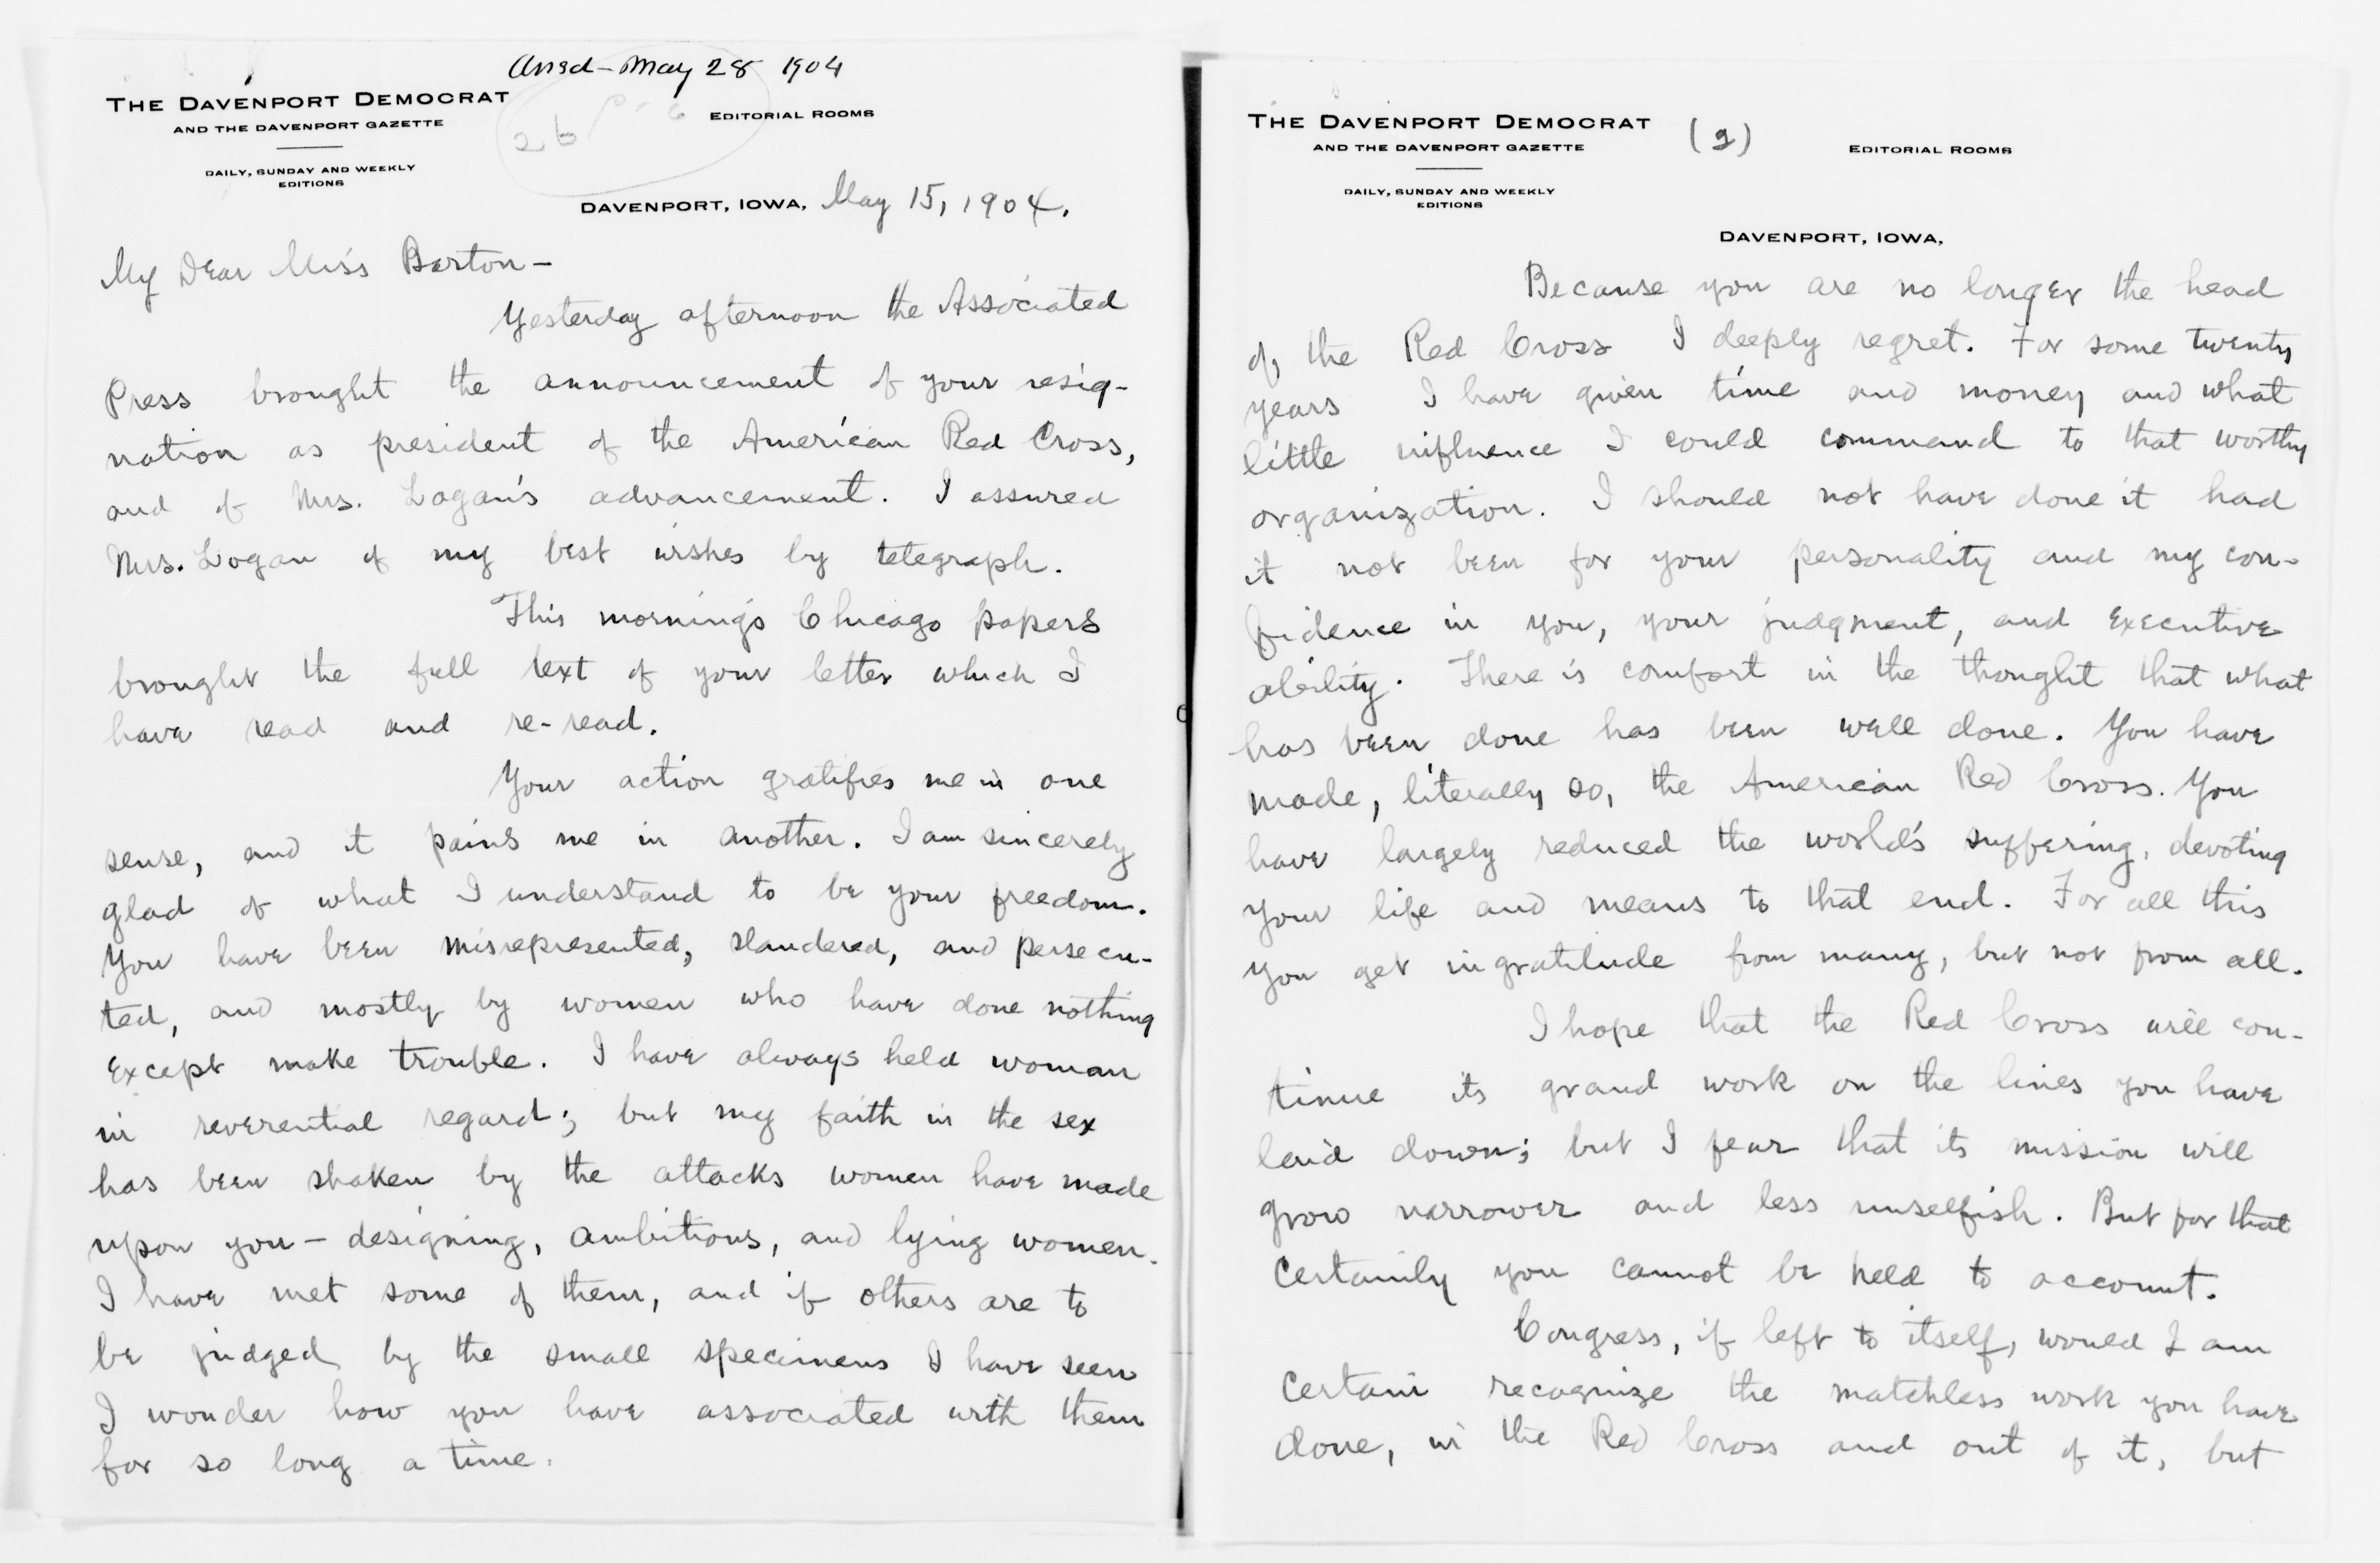 Ansd - May 28 1904
THE DAVENPORT DEMOCRAT
AND THE DAVENPORT GAZETTE
EDITORIAL ROOMS
DAILY, SUNDAY AND WEEKLY
EDITIONS
26
DAVENPORT, IOWA, May 15, 1904.
My Dear Miss Barton -
Yesterday afternoon the Associated
Press brought the announcement of your resig-
nation as president of the American Red Cross,
and of Mrs. Logan's advancement. I assured
Mrs. Logan of my best wishes by telegraph.
This morning's Chicago papers
brought the full text of your letter which I
have read and re-read.
Your action gratifies me in one
sense, and it pains me in another. I am sincerely
glad of what I understand to be your freedom.
You have been misrepresented, slandered, and persecu-
ted, and mostly by women who have done nothing
except make trouble. I have always held woman
in reverential regard; but my faith in the sex
has been shaken by the attacks women have made
upon you - designing, ambitious, and lying women.
I have met some of them, and if others are to
be judged by the small specimens I have seen
I wonder how you have associated with them
for so long a time.
THE DAVENPORT DEMOCRAT
AND THE DAVENPORT GAZETTE
(2)
EDITORIAL ROOMS
DAILY, SUNDAY AND WEEKLY
EDITIONS
DAVENPORT, IOWA,
Because you are no longer the head
of the Red Cross I deeply regret. For some twenty
years I have given time and money and what
little influence I could command to that worthy
organization. I should not have done it had
it not been for your personality and my con-
fidence in you, your judgment, and executive
ability. There is comfort in the thought that what
has been done has been well done. You have
made, literally so, the American Red Cross. You
have largely reduced the world's suffering, devoting
your life and means to that end. For all this
you get ingratitude from many, but not from all.
I hope that the Red Cross will con-
tinue its grand work on the lines you have
laid down; but I fear that its mission will
grow narrower and less unselfish. But for that
certainly you cannot be held to account.
Congress, if left to itself, would I am
certain recognize the matchless work you have
done, in the Red Cross and out of it, but